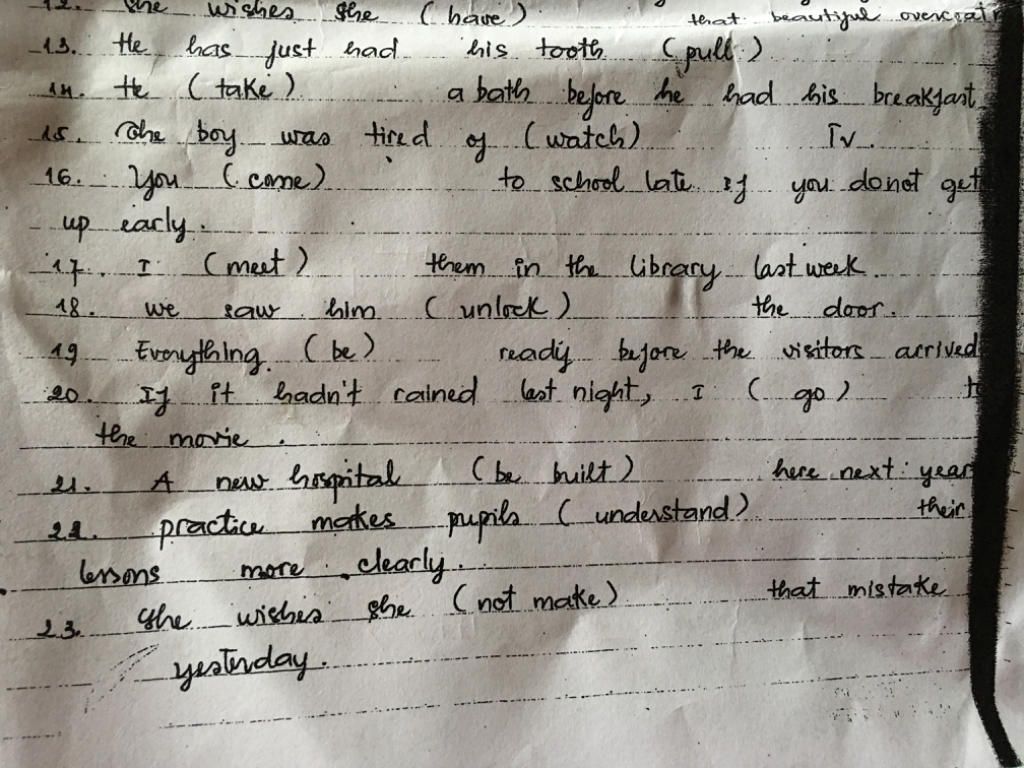 12. She wishes she (have) that beautiful overcoat
13. He has just had his tooth (pull)
14. He (take) a bath before he had his breakfast
15. The boy was tired of (watch) TV.
16. You (come) to school late if you do not get
up early.
17. I (meet) them in the library last week.
18. we saw him (unlock) the door.
19 Everything (be) ready before the visitors arrived
20. If it hadn't rained last night, I (go) t
the movie.
21. A new hospital (be built) here next year
22. practice makes pupils (understand) their
lessons more clearly.
23. She wishes she (not make) that mistake
yesterday.